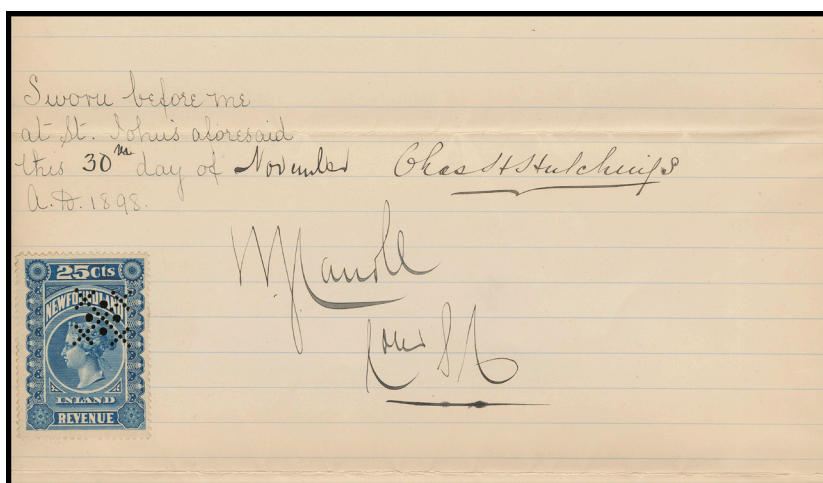 Sworn before me
at St. John's aforesaid
this 30th day of November Chas H Hutchings
A.D. 1898.
25cts
NEWFOUNDLAND
INLAND
REVENUE